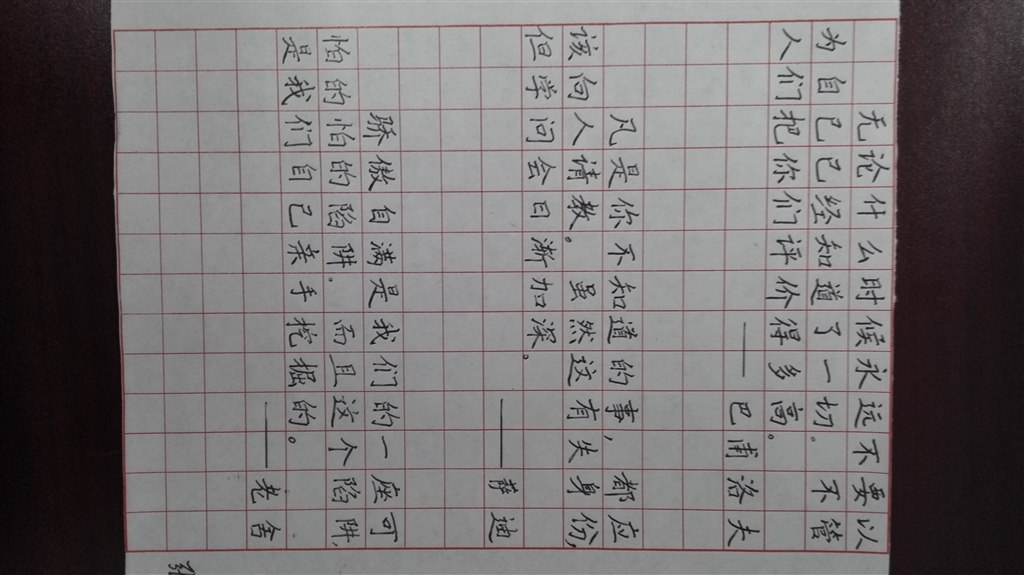 无论什么时候永远不要以
为自己已经知道了一切。不管
人们把你们评价得多高。
——巴甫洛夫
凡是你不知道的事,都应
该向人请教。虽然这有失身份,
但学问会日渐加深。
——萨迪
骄傲自满是我们的一座可
怕的怕的陷阱。而且这个陷阱,
是我们自己亲手挖掘的。
——老舍